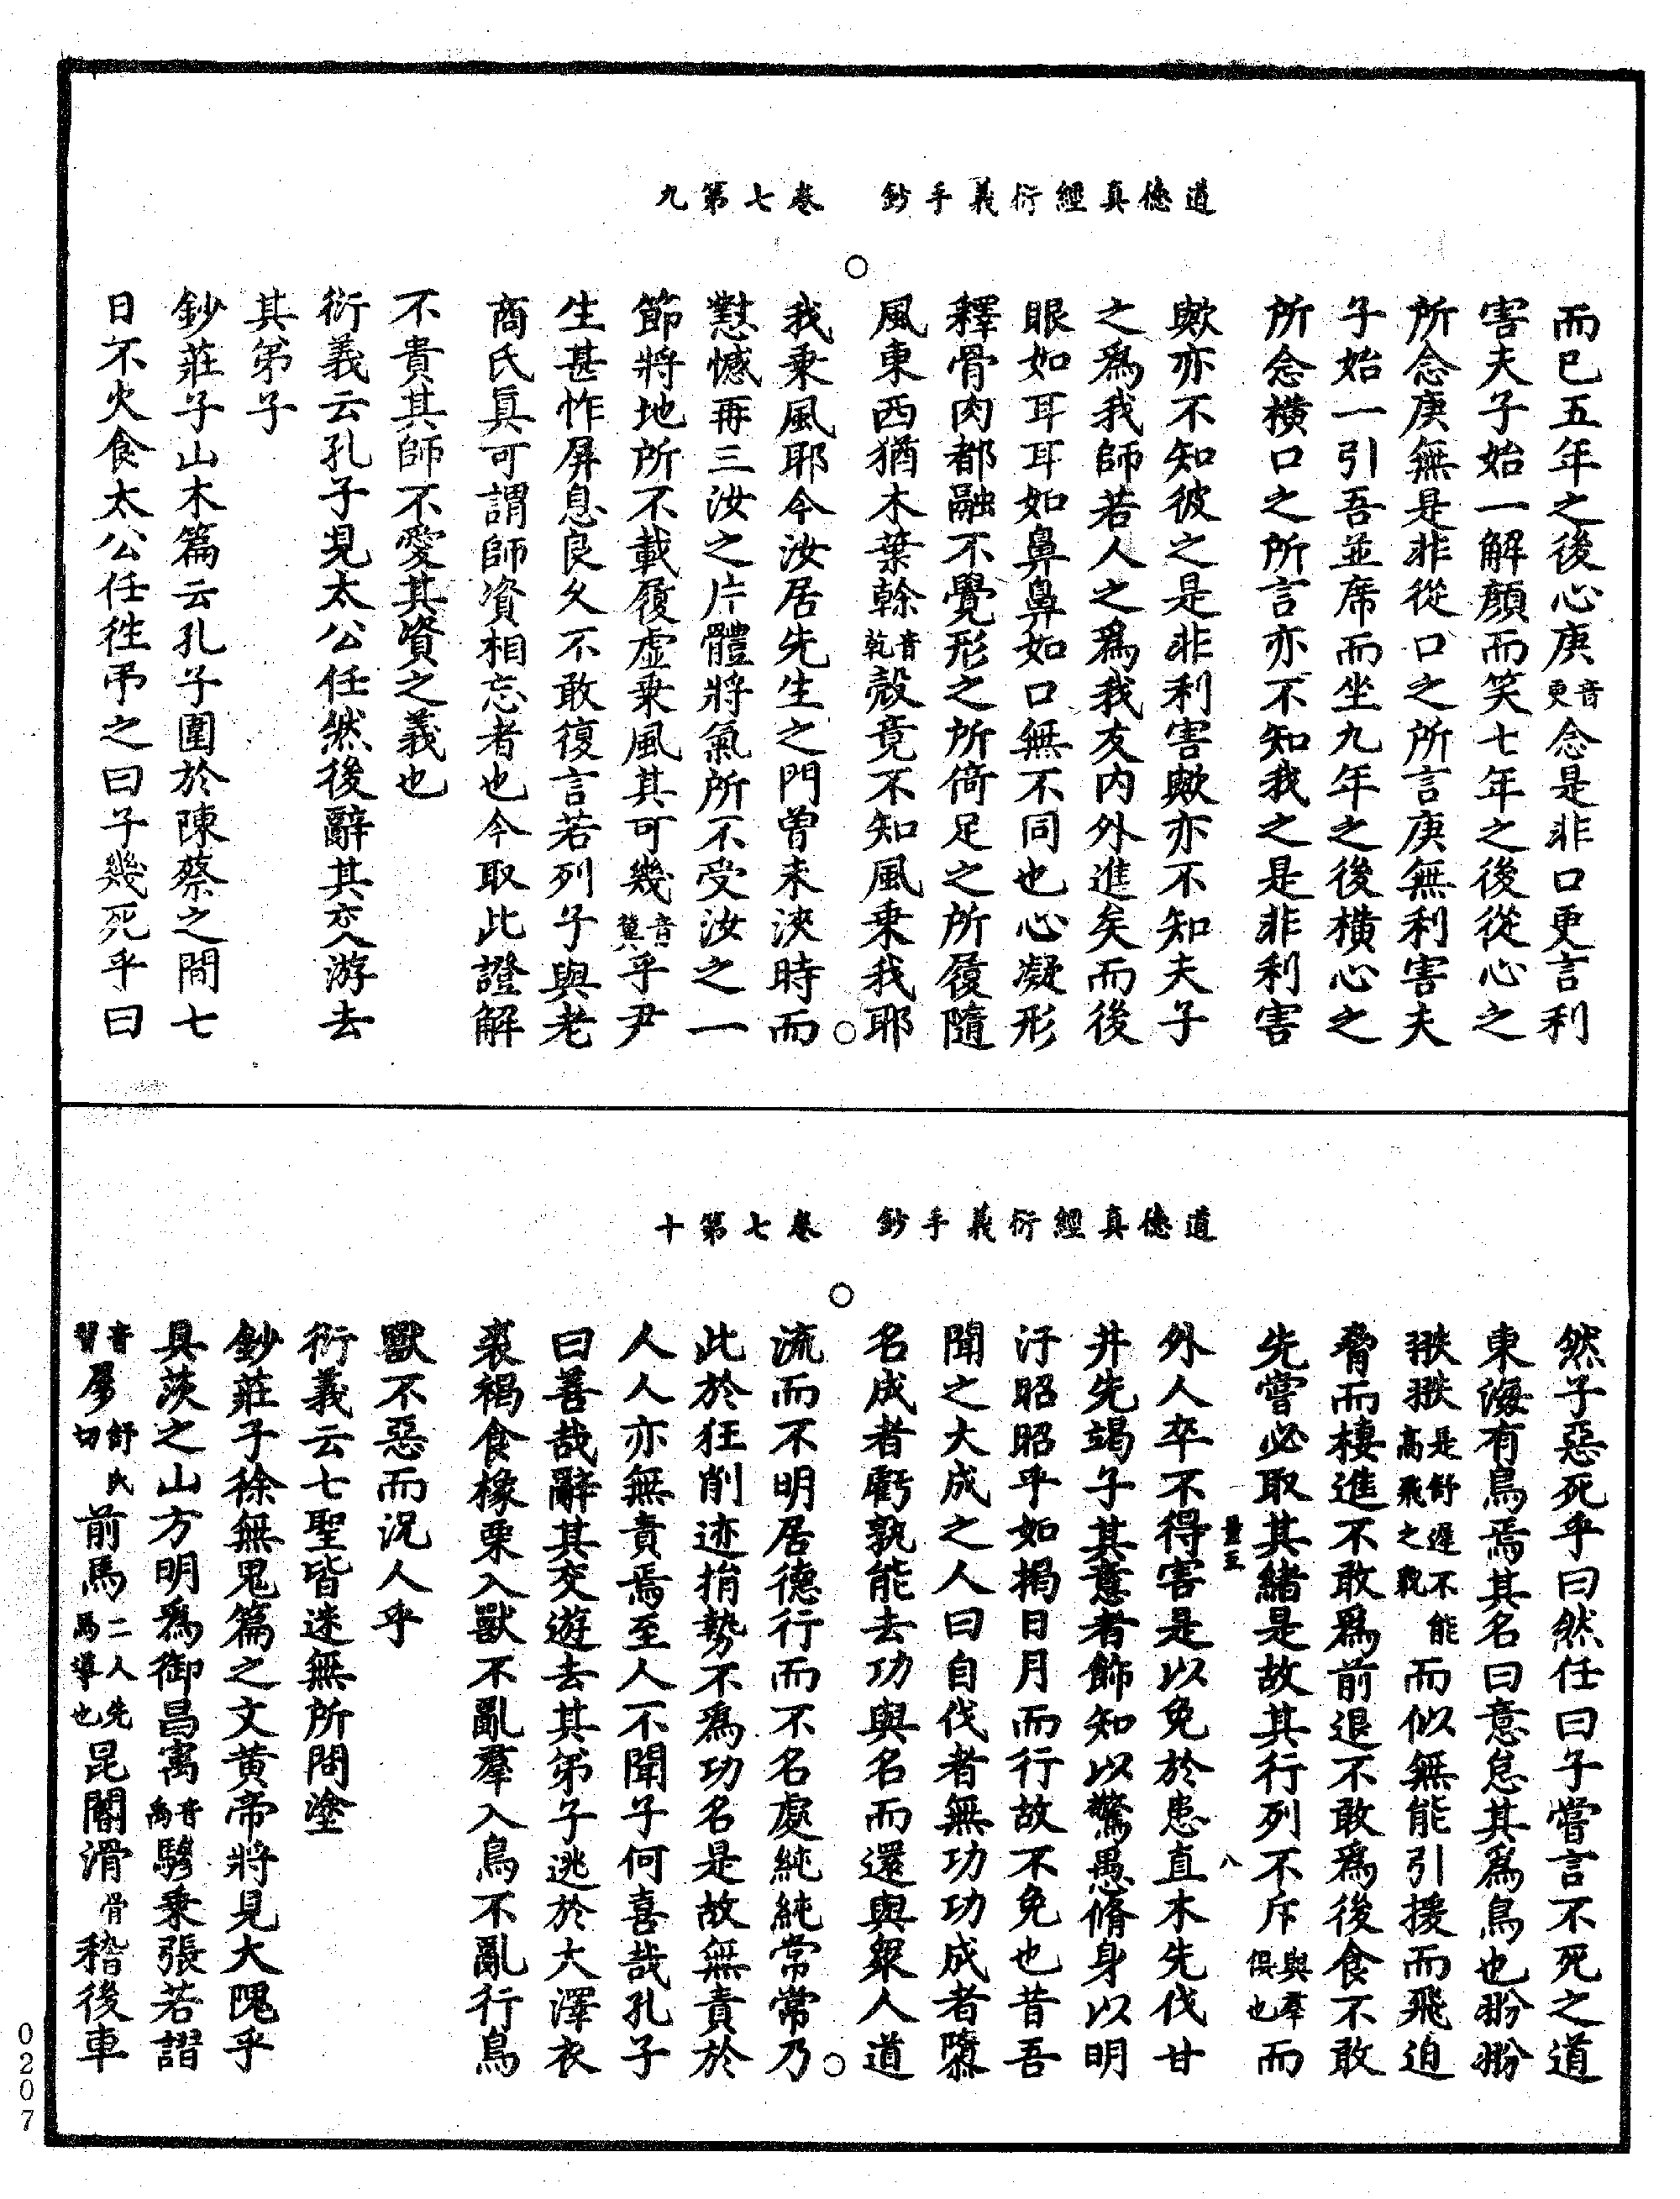 道德真經衍義手鈔　卷七第九
而已五年之後心庚音更念是非口更言利
害夫子始一解顏而笑七年之後從心之
所念庚無是非從口之所言庚無利害夫
子始一引吾並席而坐九年之後橫心之
所念橫口之所言亦不知我之是非利害
歟亦不知彼之是非利害歟亦不知夫子
之爲我師若人之爲我友內外進矣而後
眼如耳耳如鼻鼻如口無不同也心凝形
釋骨肉都融不覺形之所倚足之所履隨
風東西猶木葉榦音乾殼竟不知風乗我耶
我乗風耶今汝居先生之門曾未浹時而
懟憾再三汝之片體將氣所不受汝之一
節將地所不載履虛乗風其可幾音冀乎尹
生甚怍屏息良久不敢復言若列子與老
商氏真可謂師資相忘者也今取此證解
不貴其師不愛其資之義也
衍義云孔子見太公任然後辭其交游去
其弟子
鈔莊子山木篇云孔子圍於陳蔡之間七
日不火食太公任徃弔之曰子幾死乎曰
道德真經衍義手鈔　卷七第十
然子惡死乎曰然任曰子嘗言不死之道
東海有鳥焉其名曰意怠其爲鳥也翂翂
翐翐是舒遲不能高飛之貌而似無能引援而飛迫
脅而棲進不敢爲前退不敢爲後食不敢
先嘗必取其緒是故其行列不斥與羣俱也而
外人卒不得害是以免於患直木先伐甘
井先竭子其意者飾知以驚愚脩身以明
汙昭昭乎如揭日月而行故不免也昔吾
聞之大成之人曰自伐者無功功成者隳
名成者虧孰能去功與名而還與衆人道
流而不明居德行而不名處純純常常乃
此於狂削迹捐勢不爲功名是故無責於
人人亦無責焉至人不聞子何喜哉孔子
曰善哉辭其交遊去其弟子逃於大澤衣
裘褐食橡栗入獸不亂羣入鳥不亂行鳥
獸不惡而况人乎
衍義云七聖皆迷無所問塗
鈔莊子徐無鬼篇之文黄帝將見大隗乎
具茨之山方明爲御昌寓音禹驂乗張若謵
音習㢋舒氏切前馬二人先馬導也昆閽滑骨稽後車
八
0207